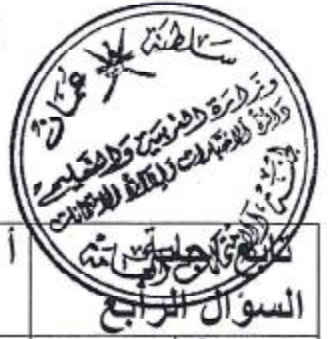 سلطنة عمان
وزارة التربية والتعليم
دائرة الاختبارات وإدارة الامتحانات
تابع إجابة
أ
السؤال الرابع